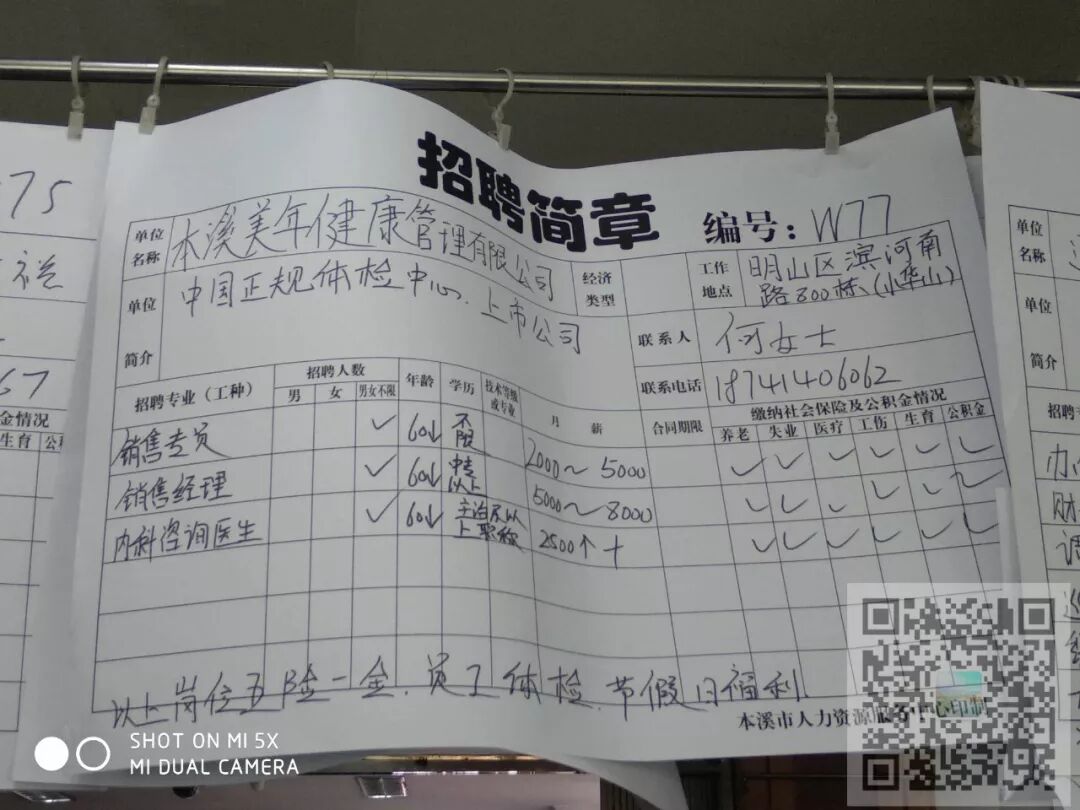 招聘简章
编号：W77
单位名称
本溪美年健康管理有限公司
经济类型
工作地点
明山区滨河南路800栋(小华山)
单位简介
中国正规体检中心、上市公司
联系人
何女士
联系电话
18741406062
招聘专业（工种）
招聘人数
男
女
男女不限
年龄
学历
技术等级或专业
月薪
合同期限
缴纳社会保险及公积金情况
养老
失业
医疗
工伤
生育
公积金
销售专员 ✓ 60↓ 不限 2000～5000 ✓ ✓ ✓ ✓ ✓ ✓
销售经理 ✓ 60↓ 中专以上 5000～8000 ✓ ✓ ✓ ✓ ✓ ✓
内科咨询医生 ✓ 60↓ 主治及以上职称 2500个+ ✓ ✓ ✓ ✓ ✓ ✓
以上岗位五险一金、员工体检、节假日福利
本溪市人力资源服务中心印制
75
67
金情况
生育
单位名称
单位
简介
招聘
SHOT ON MI 5X
MI DUAL CAMERA